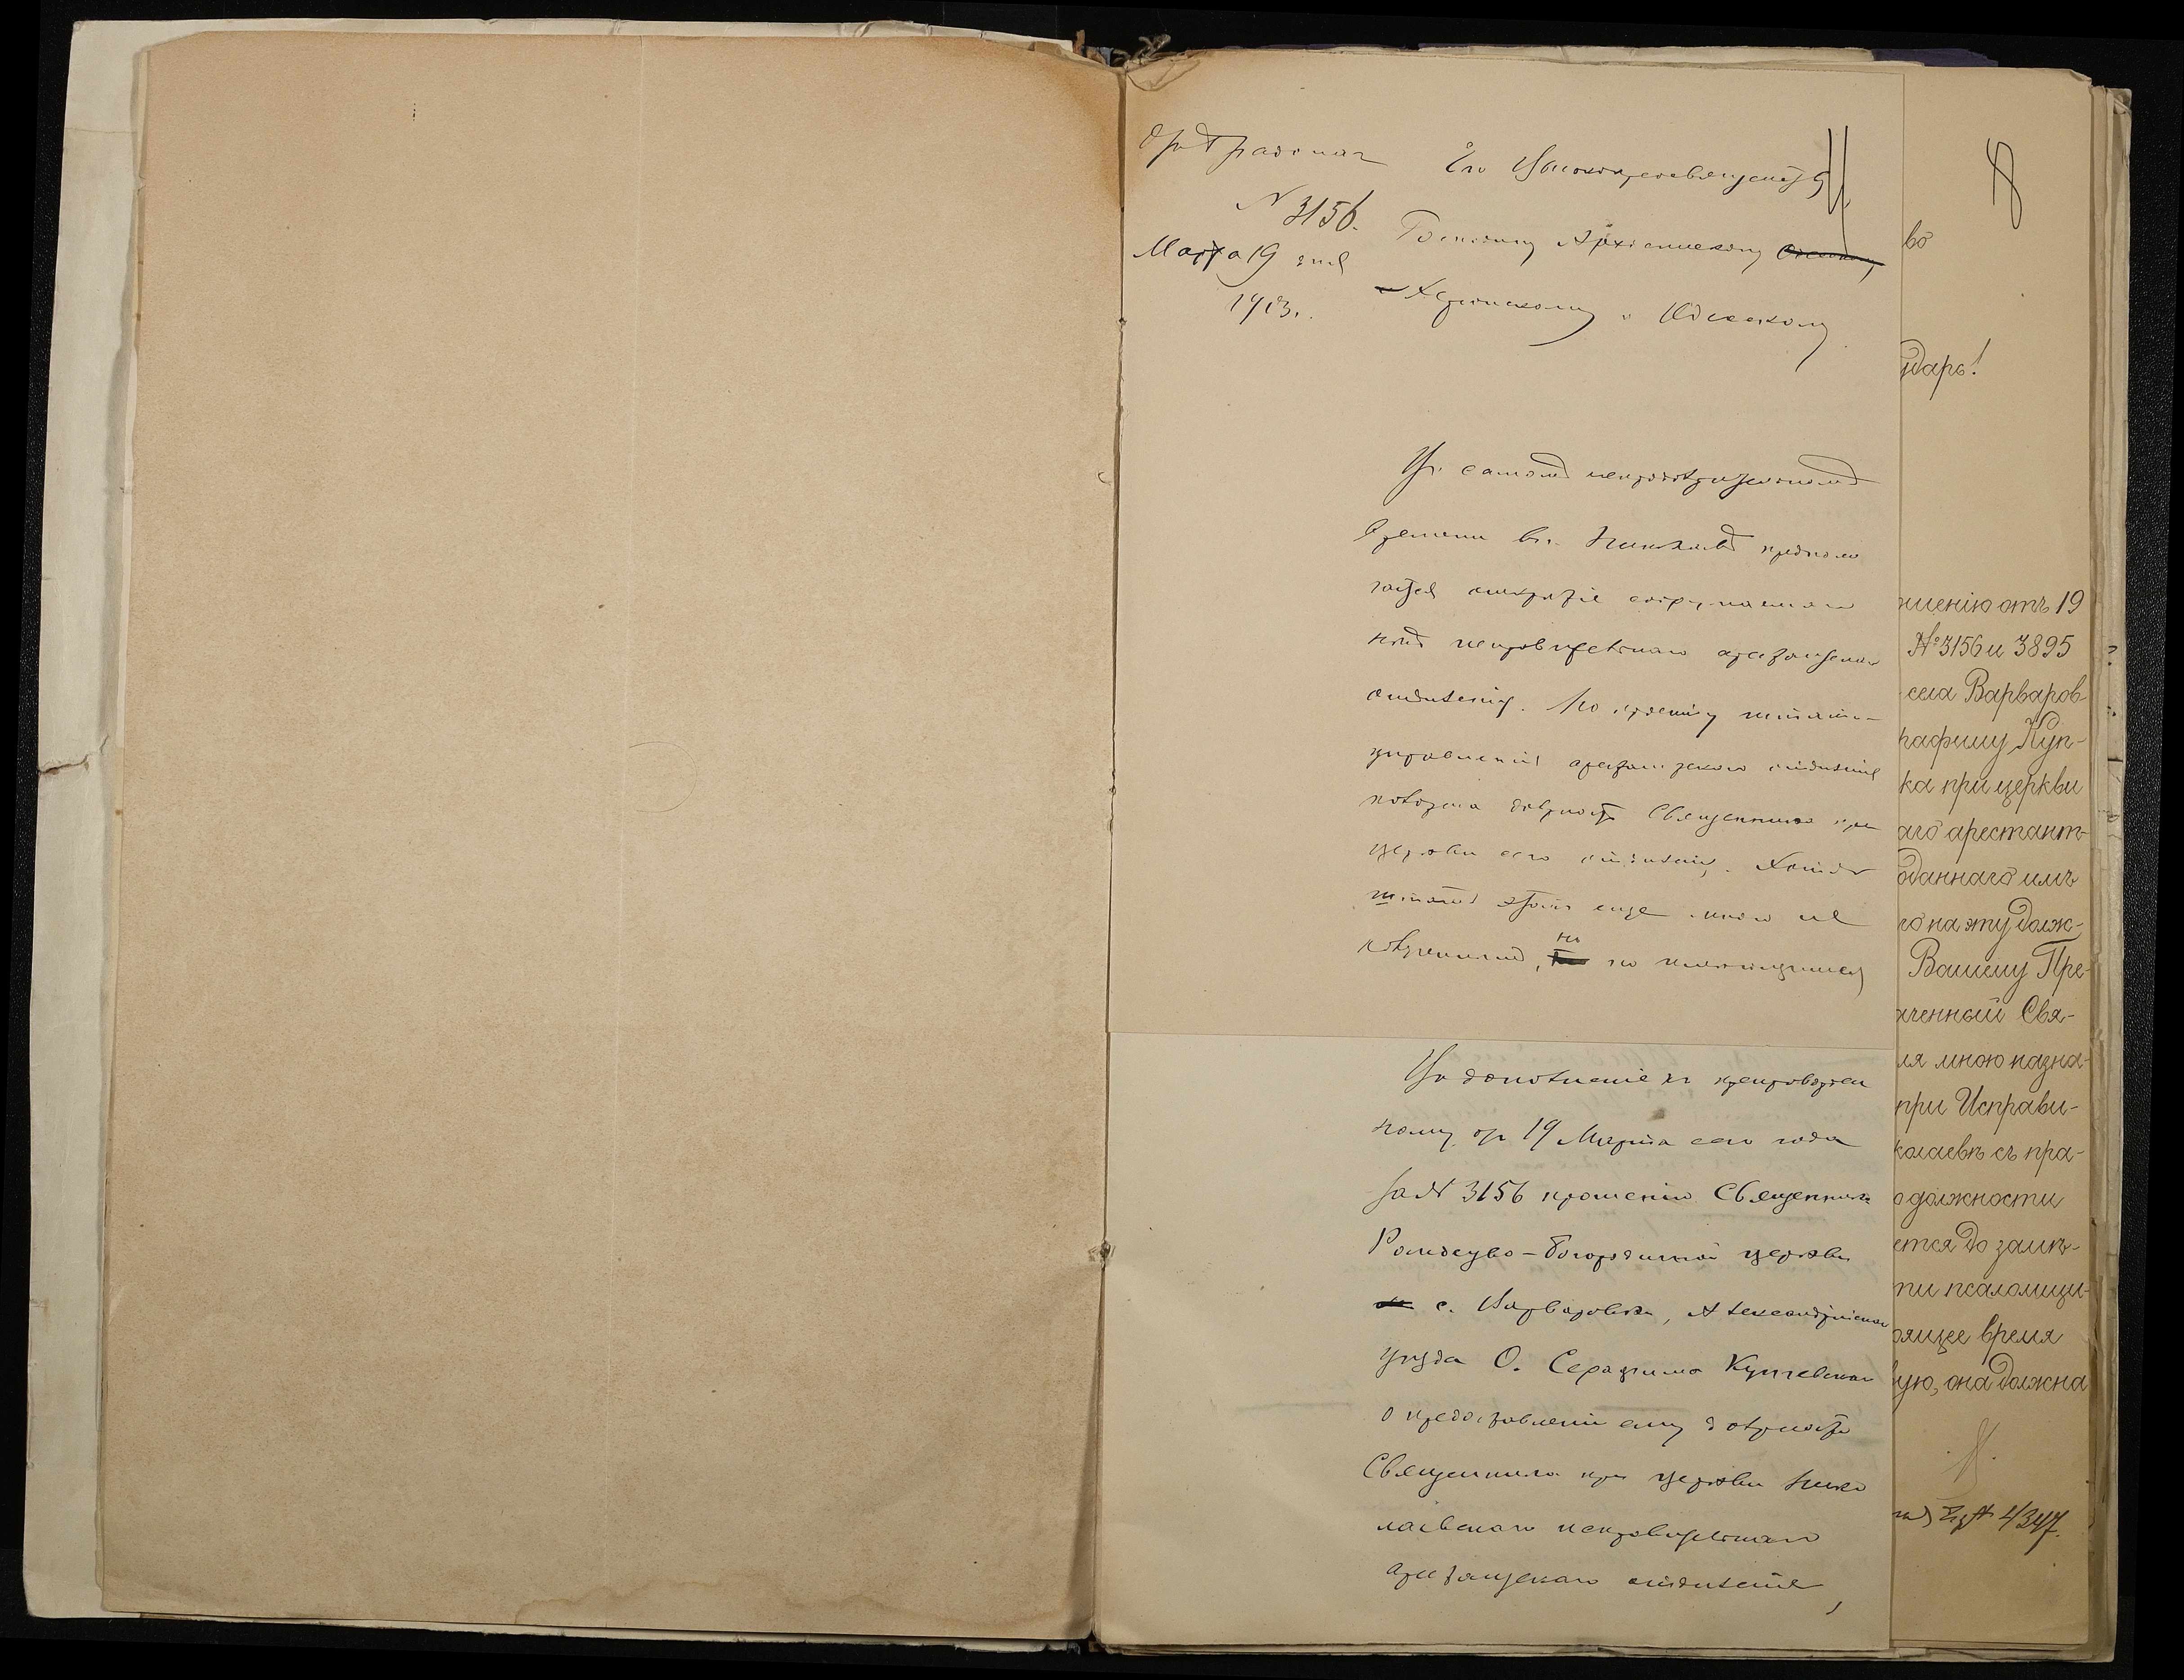 № 3156.
Марта 19 дня
1913.
Его Высокопреосвященству
Господину Архіепископу
Херсонскому и Одесскому
Въ самомъ непродолжительномъ
времени въ Николаевѣ предпола
гается открытіе
исправительнаго арестантскаго
отдѣленія. По
управленія арестантскаго отдѣленія
должность Священника при
церкви сего отдѣленія.
штатъ этотъ еще мною не
полученъ, но по имеющимся
Въ дополненіе къ препровожден
ному отъ 19 Марта сего года
за № 3156 прошенію Священника
Рождество-Богородичной церкви
с. Варваровки, Александрійскаго
уѣзда О. Серафима Купчевскаго
о предоставленіи ему должности
Священника при церкви Нико
лаевскаго исправительнаго
арестантскаго отдѣленія,
8
во
ударь!
ошенію отъ 19
№ 3156 и 3895
села Варваров-
рафиму Куп-
ка при церкви
аго арестант-
оданнаго имъ
го на эту долж-
Вашему Пре-
аченный Свя-
ля мною назна-
при Исправи-
колаевѣ съ пра-
о должности
ется до замѣ-
ти псаломщи-
оящее время
ую, она должна
4347.